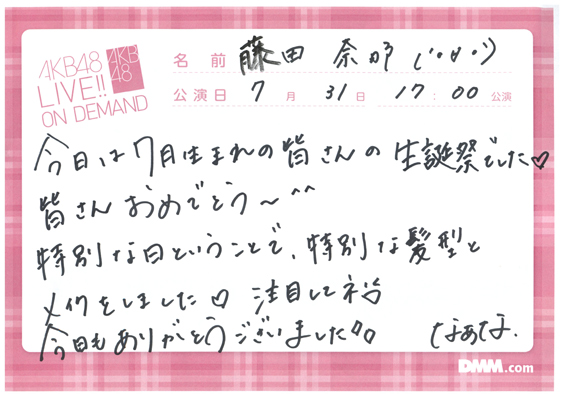 AKB48
LIVE!!
ON DEMAND
AKB
48
名前 藤田 奈那 (´･ㅂ･`)
公演日 7月 31日 17:00 公演
今日は7月生まれの皆さんの生誕祭でした♡
皆さんおめでとう〜^^
特別な日ということで、特別な髪型と
メイクをしました♡ 注目して
今日もありがとうございました
なぁな.
DMM.com